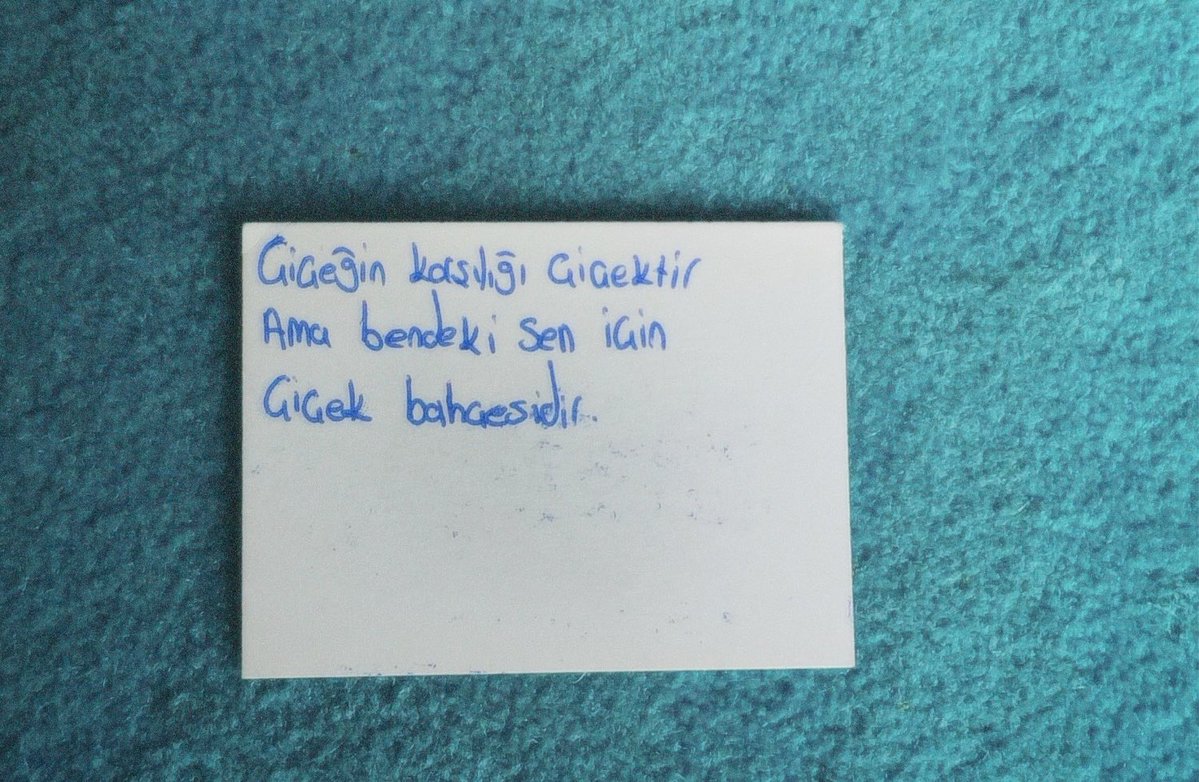 Çiçeğin karşılığı çiçektir
Ama bendeki sen için
Çiçek bahçesidir.